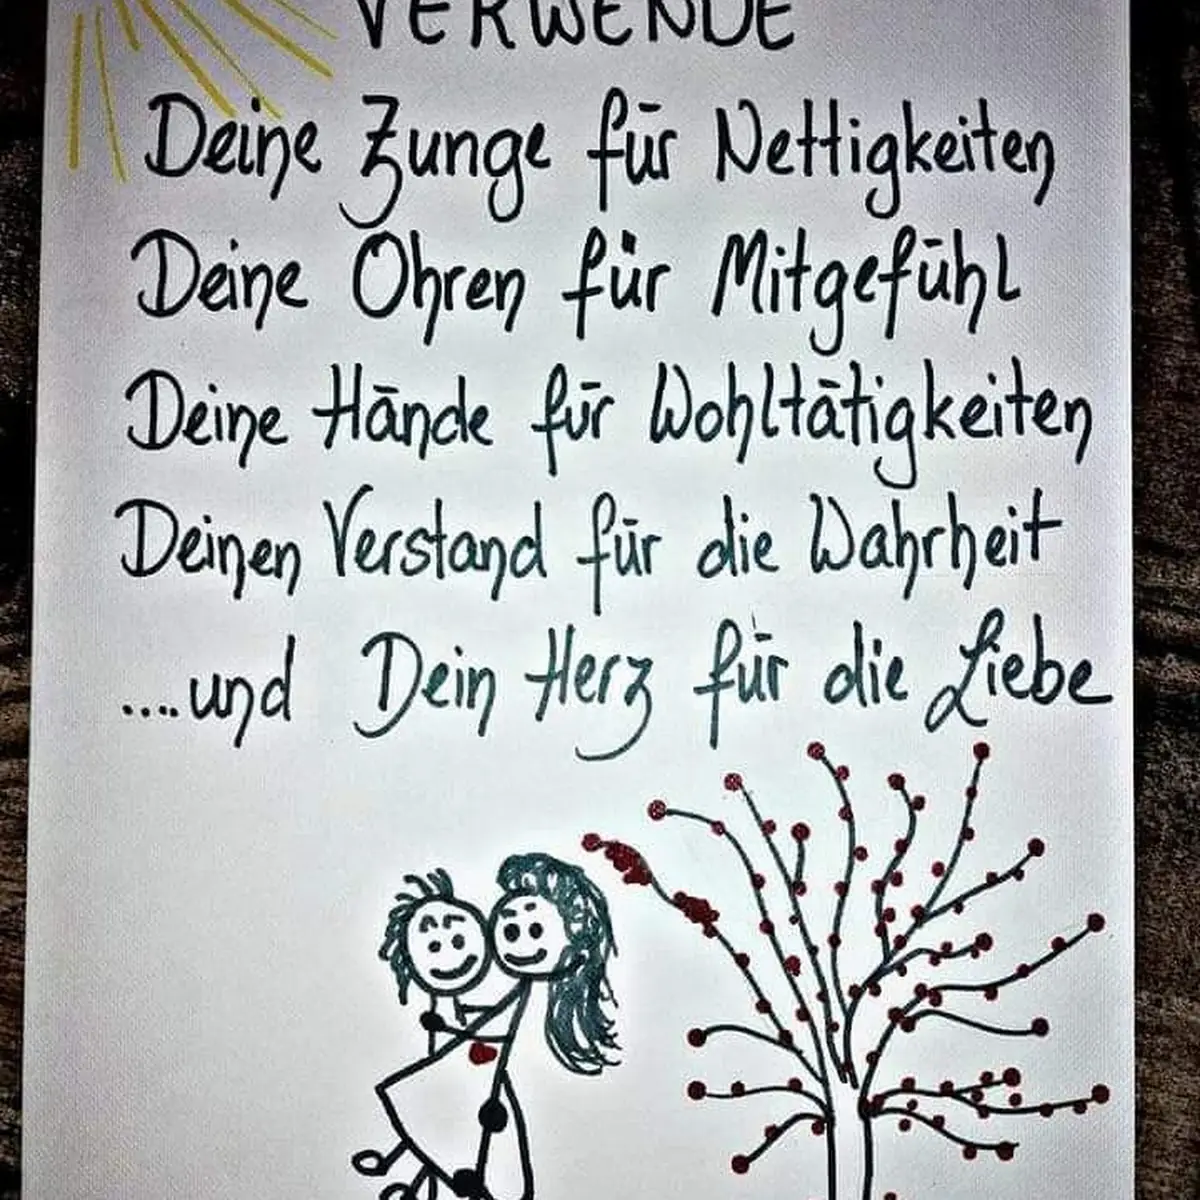 VERWENDE
Deine Zunge für Nettigkeiten
Deine Ohren für Mitgefühl
Deine Hände für Wohltätigkeiten
Deinen Verstand für die Wahrheit
....und Dein Herz für die Liebe